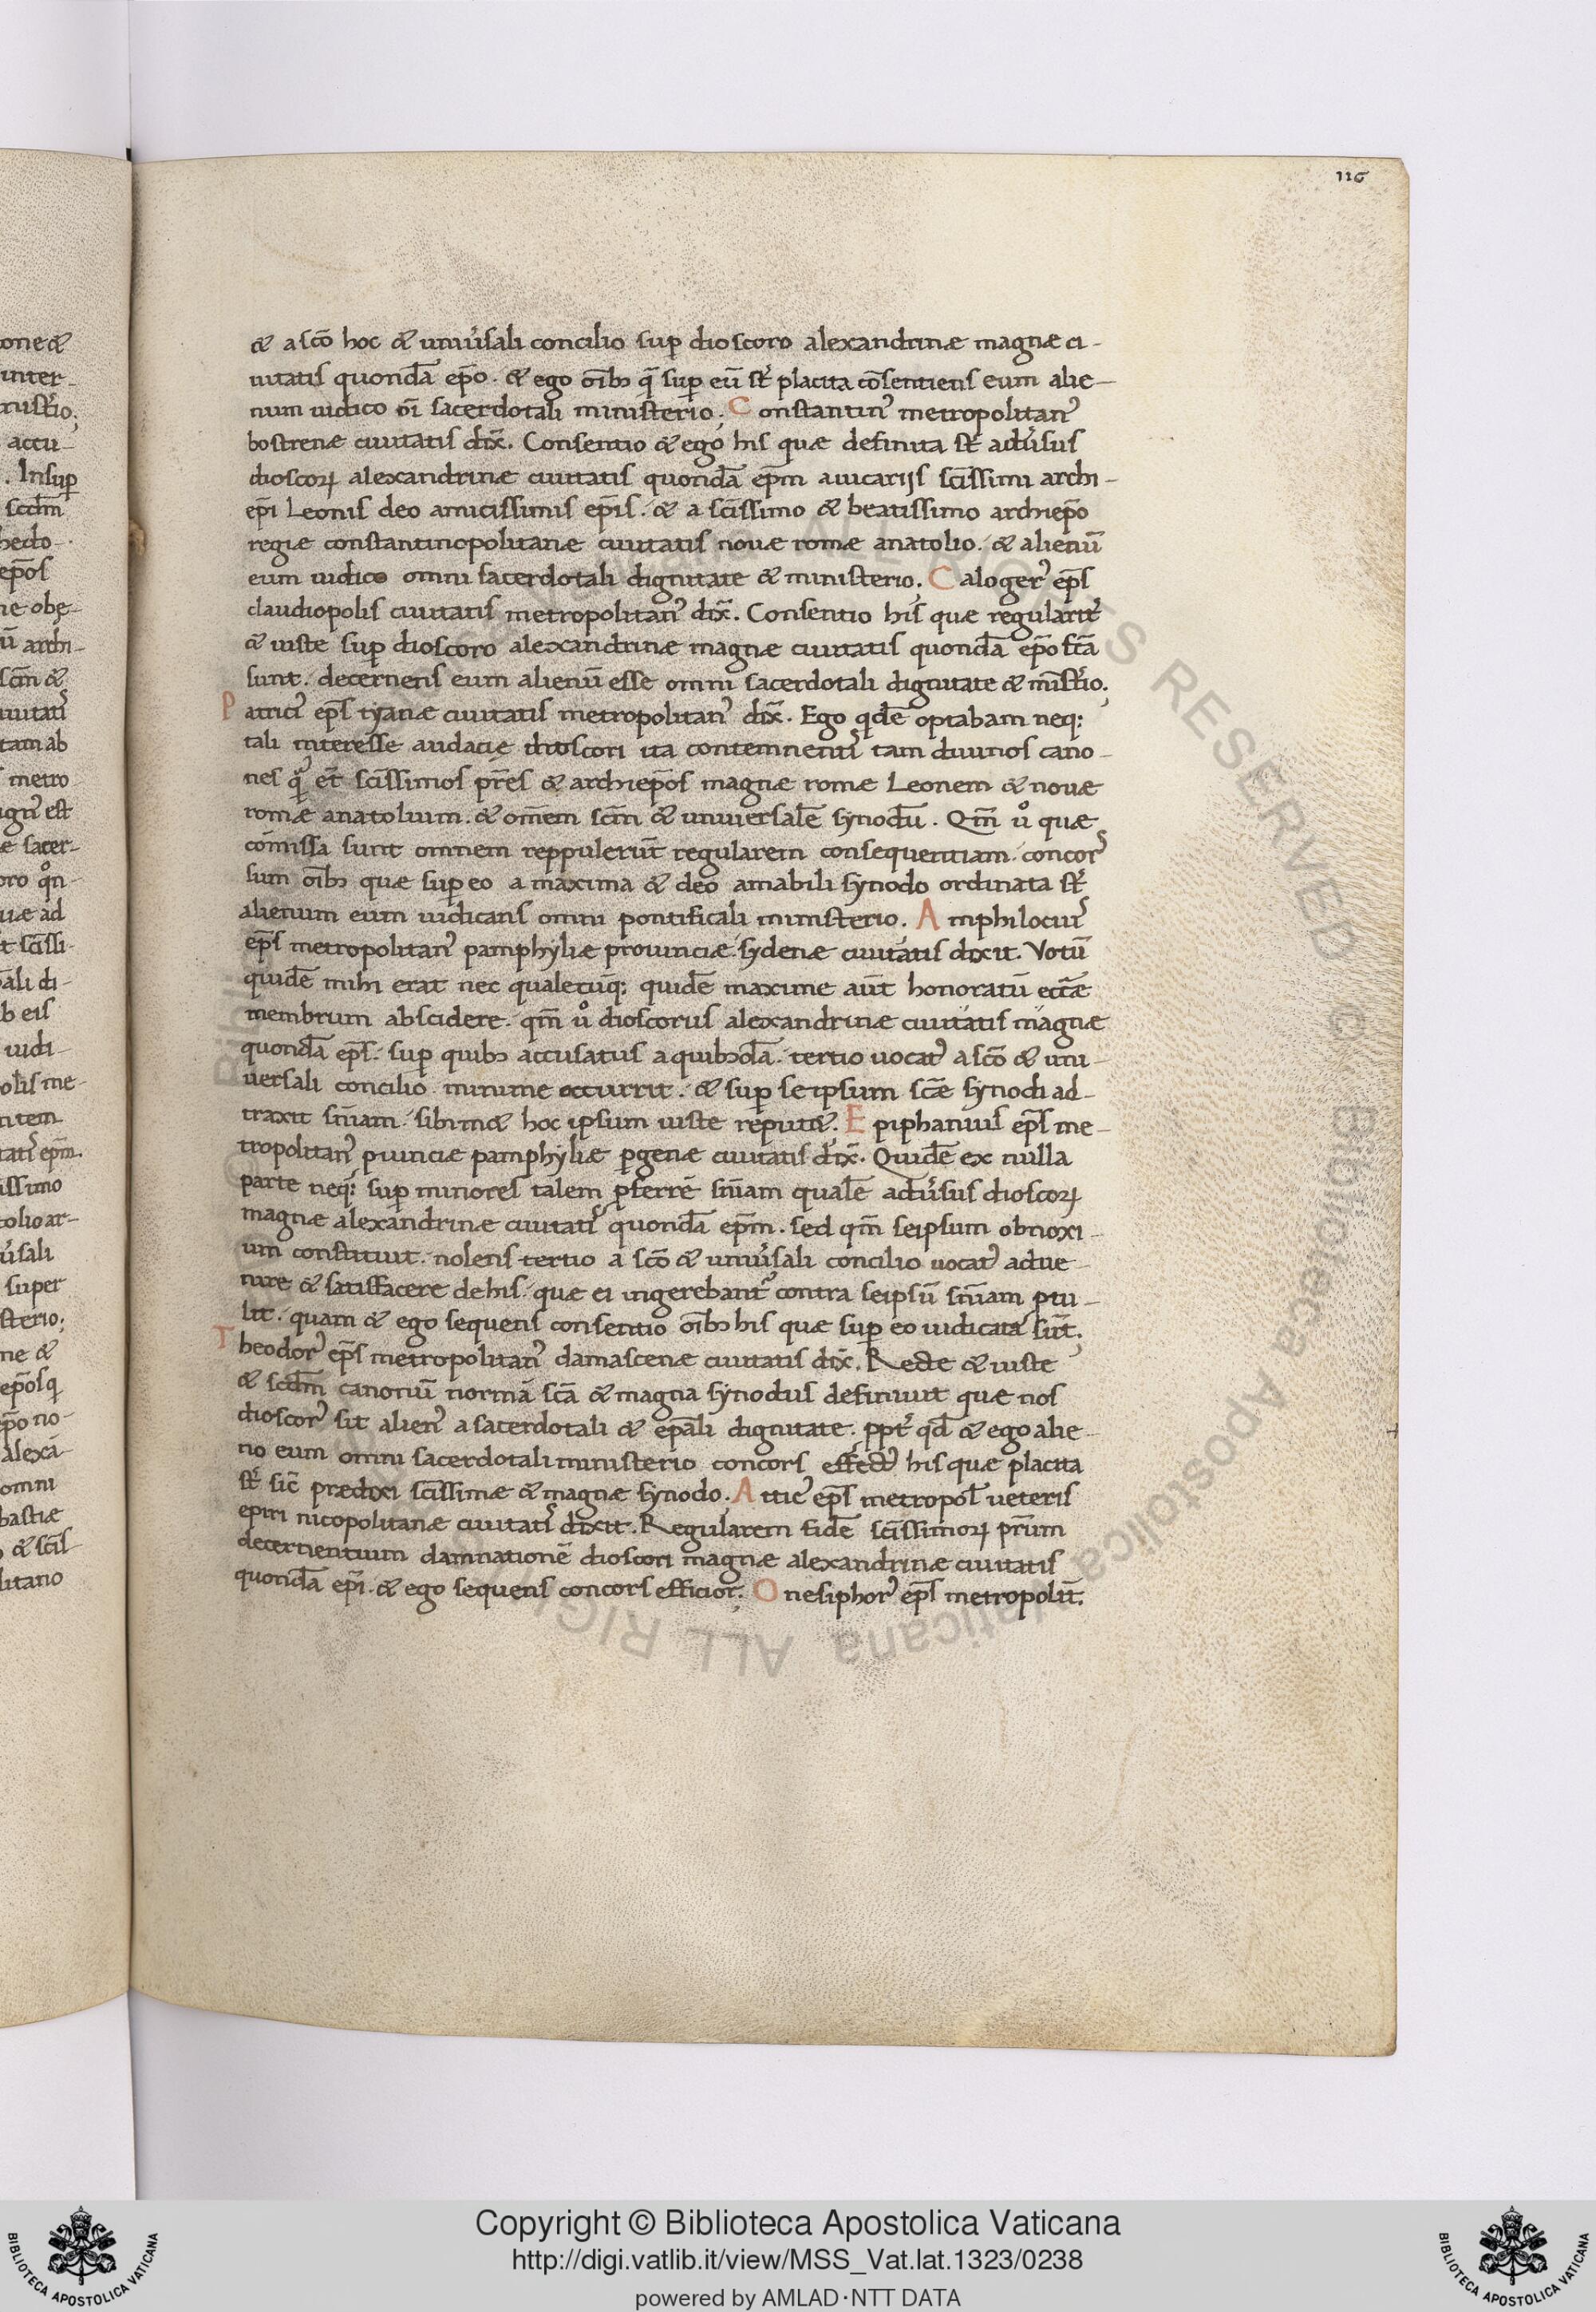 116
& a sco hoc & uniu'sali concilio sup dioscoro alexandrinæ magnæ ci-
uitatis quonda epo. & ego oibꝫ q̄ sup eū st placita cōsentiens eum alie-
num iudico oi sacerdotali ministerio; Constantin' metropolitan'
bostrenæ ciuitatis dix̄. Consentio & ego his quæ definita st adu'sus
dioscoꝝ alexandrinæ ciuitatis quondā epm auicarijs scissimi archi-
epi Leonis deo amicissimis epis. & a scissimo & beatissimo archiepo
regiæ constantinopolitanæ ciuitatis nouæ romæ anatolio. & alienū
eum iudico omni sacerdotali dignitate & ministerio. Caloger' eps
claudiopolis ciuitatis metropolitan' dix̄. Consentio his quæ regularit'
& iuste sup dioscoro alexandrinæ magnæ ciuitatis quondā epo fca
sunt. decernens eum alienū esse omni sacerdotali dignitate & mistio;
Patrici' eps tyanæ ciuitatis metropolitan' dix̄. Ego qdē optabam neq;
tali interesse audacię dioscori ita contemnenti' tam diuinos cano-
nes q̄ et scissimos pres & archiepos magnæ romæ Leonem & nouæ
romæ anatolium. & omēm scm & uniuersalē synodū. Qm̄ u° quæ
cōmissa sunt omnem reppulerūt regularem consequentiam. concor'
sum oibꝫ quæ sup eo a maxima & deo amabili synodo ordinata st
alienum eum iudicans omni pontificali ministerio. Amphilociu'
eps metropolitan' pamphyliæ prouinciæ. sydenæ ciuitatis dixit. Votū
quidē mihi erat nec qualecūq; quidē maxime aūt honoratū eccæ
membrum abscidere. qm̄ u° dioscorus alexandrinæ ciuitatis magnæ
quondā eps. sup quibꝫ accusatus a quibꝫdā. tertio uocat' a sco & uni-
uersali concilio minime occurrit. & sup se ipsum scæ synodi ad-
traxit sniam. sibim& hoc ipsum iuste reput&. Epiphanius eps me-
tropolitan' puinciæ pamphyliæ pgenæ ciuitatis dix̄. Quidē ex nulla
parte neq; sup minores talem pferre sniam qualē adu'sus dioscoꝝ
magnæ alexandrinæ ciuitati' quondā epm. sed qm̄ seipsum obnoxi-
um constituit. nolens tertio a sco & uniu'sali concilio uocat' adue-
nire & satisfacere de his. quæ ei ingerebant' contra seipsū sniam ptu-
lit. quam & ego sequens consentio oibꝫ his quæ sup eo iudicata sūt;
Theodor' eps metropolitan' damascenæ ciuitatis dix̄. Recte & iuste
& scdm canonū normā sca & magna synodus definiuit quæ nos
dioscor' sit alien' a sacerdotali & epali dignitate. ppt' qd & ego alie-
no eum omni sacerdotali ministerio concors effect' his quæ placita
st sic prædixi scissimæ & magnæ synodo. Attic' eps metropol ueteris
epiri nicopolitanæ ciuitati' dixit. Regularem fidē scissimoꝝ prum
decernentium damnationē dioscori magnæ alexandrinæ ciuitatis
quondā epi. & ego sequens concors efficior; Onesiphor' eps metropolit;
Copyright © Biblioteca Apostolica Vaticana
http://digi.vatlib.it/view/MSS_Vat.lat.1323/0238
powered by AMLAD·NTT DATA